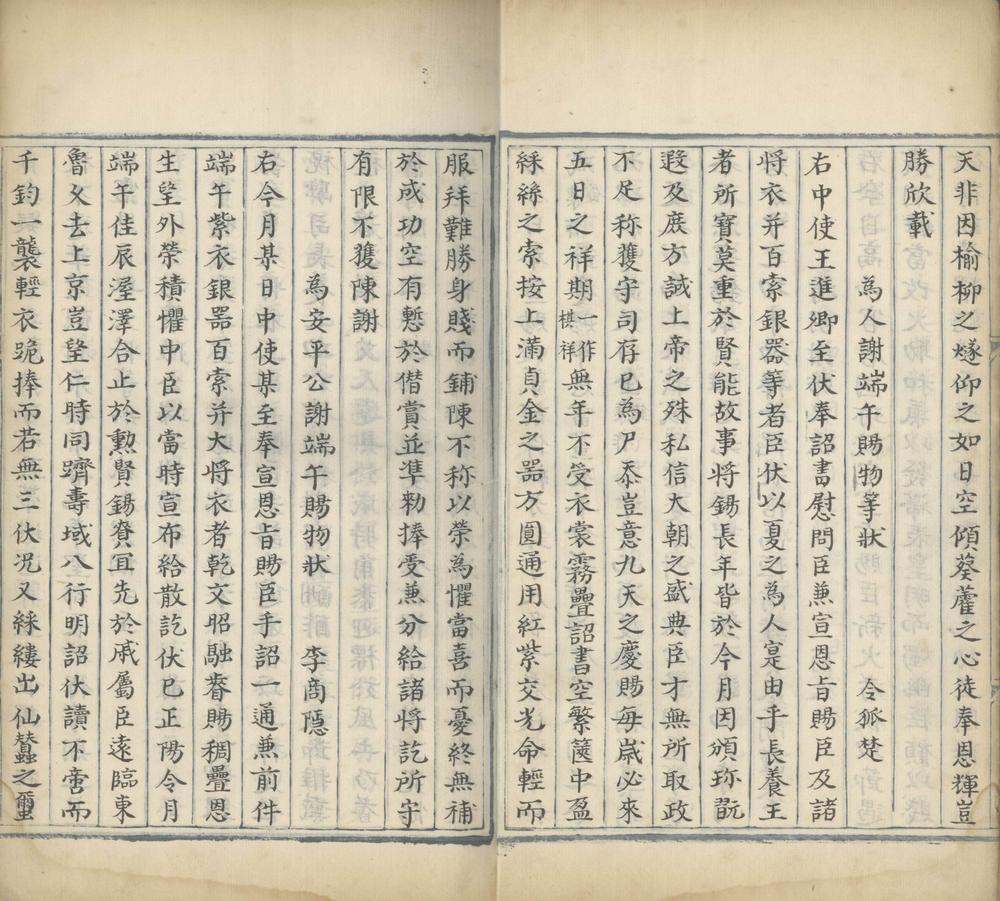 天非因榆柳之燧仰之如日空傾葵藿之心徒奉恩輝豈
勝欣載
為人謝端午賜物等狀　令狐楚
右中使王進卿至伏奉詔書慰問臣兼宣恩旨賜臣及諸
将衣并百索銀器等者臣伏以夏之為人寔由手長養王
者所寳莫重於賢能故事将錫長年皆於今月因頒珎翫
遐及庶方誠上帝之殊私信大朝之盛典臣才無所取政
不足称獲守司存已為尸忝豈意九天之慶賜每歳必來
五日之祥期一作棋祥無年不受衣裳霧疊詔書空繁篋中盈
綵絲之索按上滿貞金之器方圓通用紅紫交光命輕而
服拜難勝身賤而鋪陳不称以榮為懼當喜而憂終無補
於成功空有慙於僭賞並凖勑捧受兼分給諸将訖所守
有限不獲陳謝
為安平公謝端午賜物狀　李商隱
右今月某日中使某至奉宣恩旨賜臣手詔一通兼前件
端午紫衣銀器百索并大将衣者乾文昭融眷賜稠疊恩
生望外榮積懼中臣以當時宣布給散訖伏已正陽令月
端午佳辰渥澤合止於勲賢錫賚冝先於戚屬臣遠臨東
魯乆去上京豈望仁時同躋壽域八行明詔伏讀不啻而
千鈞一襲輕衣跪捧而若無三伏况又綵縷出仙蠶之壐